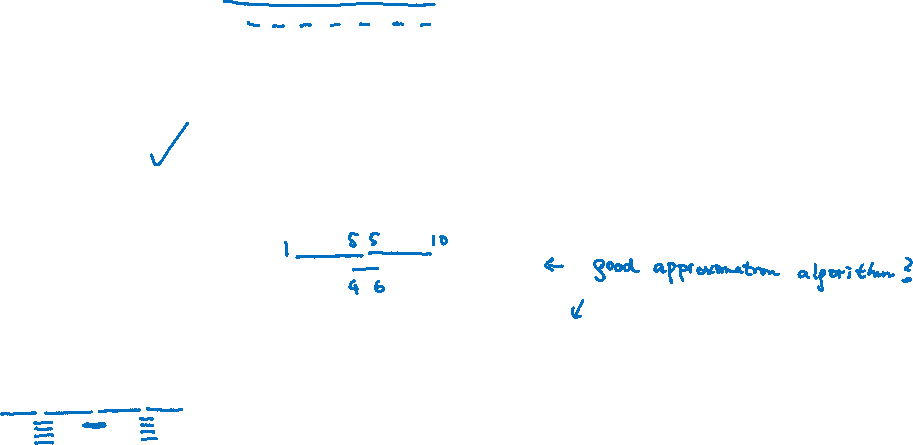 1 5 5 10
4 6
← good approximation algorithm?